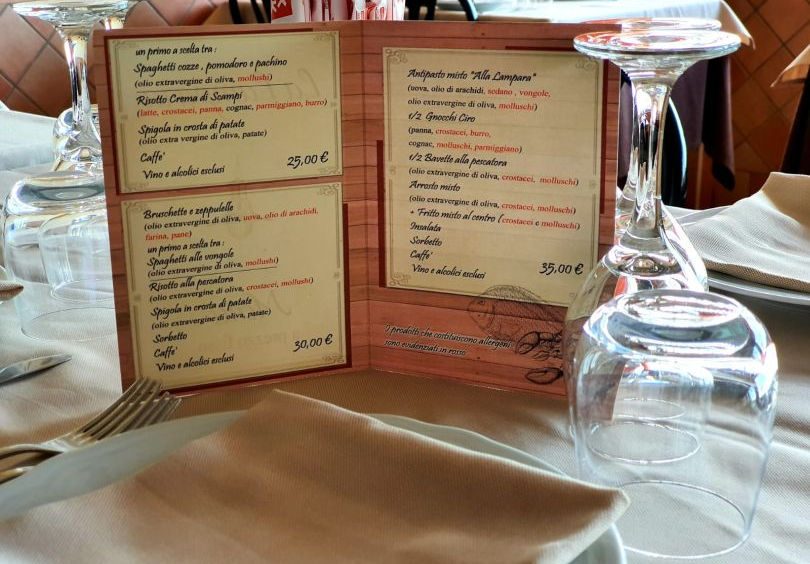 un primo a scelta tra :
Spaghetti cozze , pomodoro e pachino
(olio extravergine di oliva, mollushi)
Risotto Crema di Scampi
(latte, crostacei, panna, cognac, parmiggiano, burro)
Spigola in crosta di patate
(olio extra vergine di oliva, patate)
Caffe'
Vino e alcolici esclusi
25,00 €
Bruschette e zeppulelle
(olio extravergine di oliva, uova, olio di arachidi,
farina, pane)
un primo a scelta tra :
Spaghetti alle vongole
(olio extravergine di oliva, mollushi)
Risotto alla pescatora
(olio extravergine di oliva, crostacei, mollushi)
Spigola in crosta di patate
(olio extravergine di oliva, patate)
Sorbetto
Caffe'
Vino e alcolici esclusi
30,00 €
Antipasto misto "Alla Lampara"
(uova, olio di arachidi, sedano , vongole,
olio extravergine di oliva, molluschi)
1/2 Gnocchi Ciro
(panna, crostacei, burro,
cognac, molluschi, parmigiano)
1/2 Bavette alla pescatora
(olio extravergine di oliva, crostacei, molluschi)
Arrosto misto
(olio extravergine di oliva, crostacei, molluschi)
+ Fritto misto al centro ( crostacei e molluschi)
Insalata
Sorbetto
Caffe'
Vino e alcolici esclusi
35,00 €
I prodotti che costituiscono allergeni
sono evidenziati in rosso